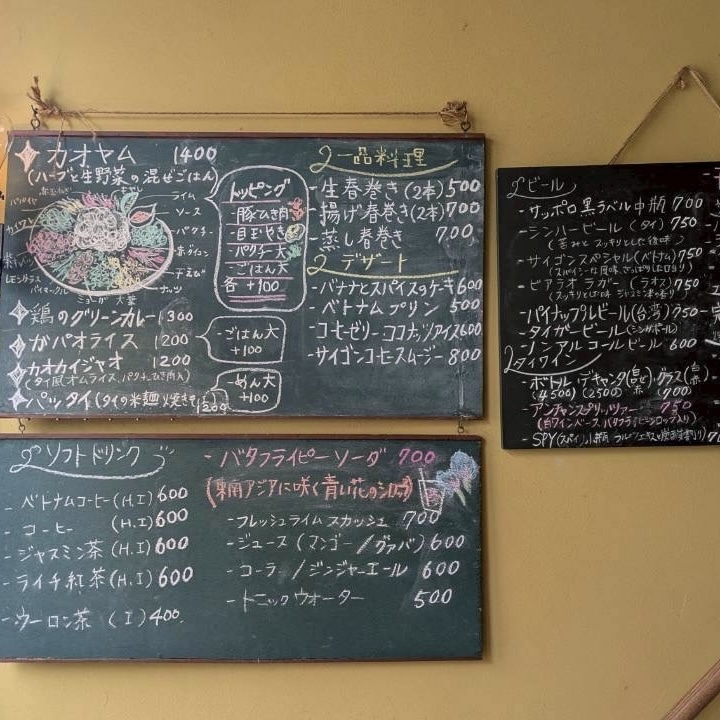 カオヤム 1400
(ハーブと生野菜の混ぜごはん)
ライム
ソース
パクチー
干えび
ナッツ
レモングラス
ミョーガ 大葉
トッピング
- 豚ひき肉
- 目玉やき
- パクチー大
- ごはん大
各 +100
鶏のグリーンカレー 1300
ガパオライス 1200
- ごはん大
+100
カオカイジャオ 1200
(タイ風オムライス、パクチー、ひき肉入)
パッタイ (タイの米麺焼きそば) 1200
- めん大
+100
一品料理
- 生春巻き(2本) 500
- 揚げ春巻き(2本) 700
- 蒸し春巻き 700
デザート
- バナナとスパイスのケーキ 600
- ベトナムプリン 500
- コーヒーゼリーココナッツアイス 600
- サイゴンコーヒースムージー 800
ソフトドリンク
- ベトナムコーヒー (H.I) 600
- コーヒー (H.I) 600
- ジャスミン茶 (H.I) 600
- ライチ紅茶 (H.I) 600
- ウーロン茶 (I) 400
- バタフライピーソーダ 700
(東南アジアに咲く青い花のシロップ)
- フレッシュライムスカッシュ 700
- ジュース (マンゴー/グァバ) 600
- コーラ / ジンジャーエール 600
- トニックウォーター 500
ビール
- サッポロ黒ラベル中瓶 700
- シンハービール (タイ) 750
(苦みとスッキリとした後味)
- サイゴンスペシャル (ベトナム) 750
(スパイシーな風味 さっぱりした口当り)
- ビアラオ ラガー (ラオス) 750
(スッキリとした味 ジャスミン米の香り)
- パイナップルビール (台湾) 750
- タイガービール (シンガポール)
- ノンアルコールビール 600
タイワイン
- ボトル・デキャンタ (白 赤)・グラス (白 赤)
(4500) (2500) 700
- アンチャンスプリッツァー 750
(白ワインベース、バタフライピーシロップ入り)
- SPY